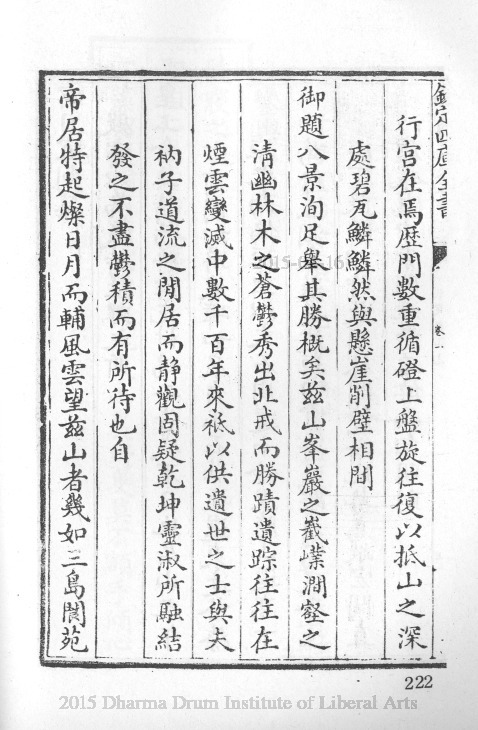 欽定四庫全書
卷一
行宮在焉歴門數重循磴上盤旋往復以抵山之深
處碧瓦鱗鱗然與懸崖削壁相間
御題八景洵足舉其勝概矣茲山峯巖之嶻嶪澗壑之
清幽林木之蒼鬱秀出北戒而勝蹟遺踪往往在
煙雲變滅中數千百年來祗以供遺世之士與夫
衲子道流之閒居而静觀固疑乾坤靈淑所融結
發之不盡鬱積而有所待也自
帝居特起燦日月而輔風雲望茲山者幾如三島閬苑
222
2015 Dharma Drum Institute of Liberal Arts